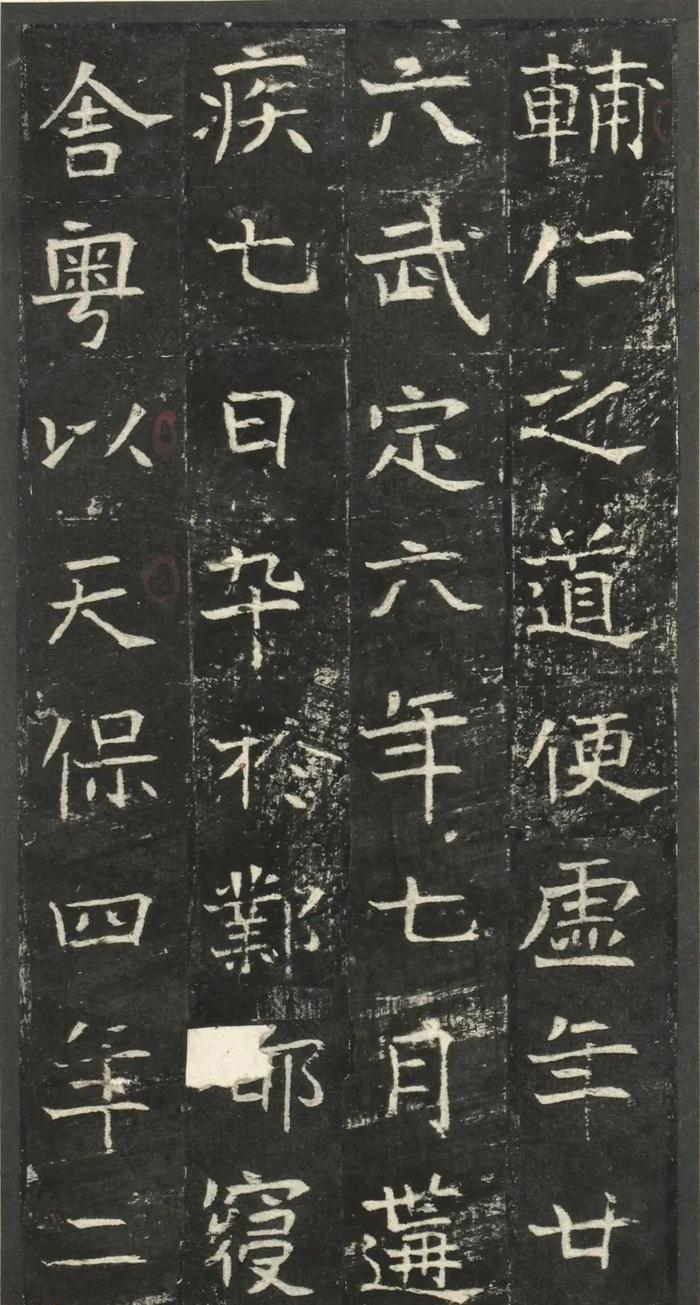 輔仁之道便虛年廿
六武定六年七月遘
疾七日卆於鄴都寢
舍粵以天保四年二